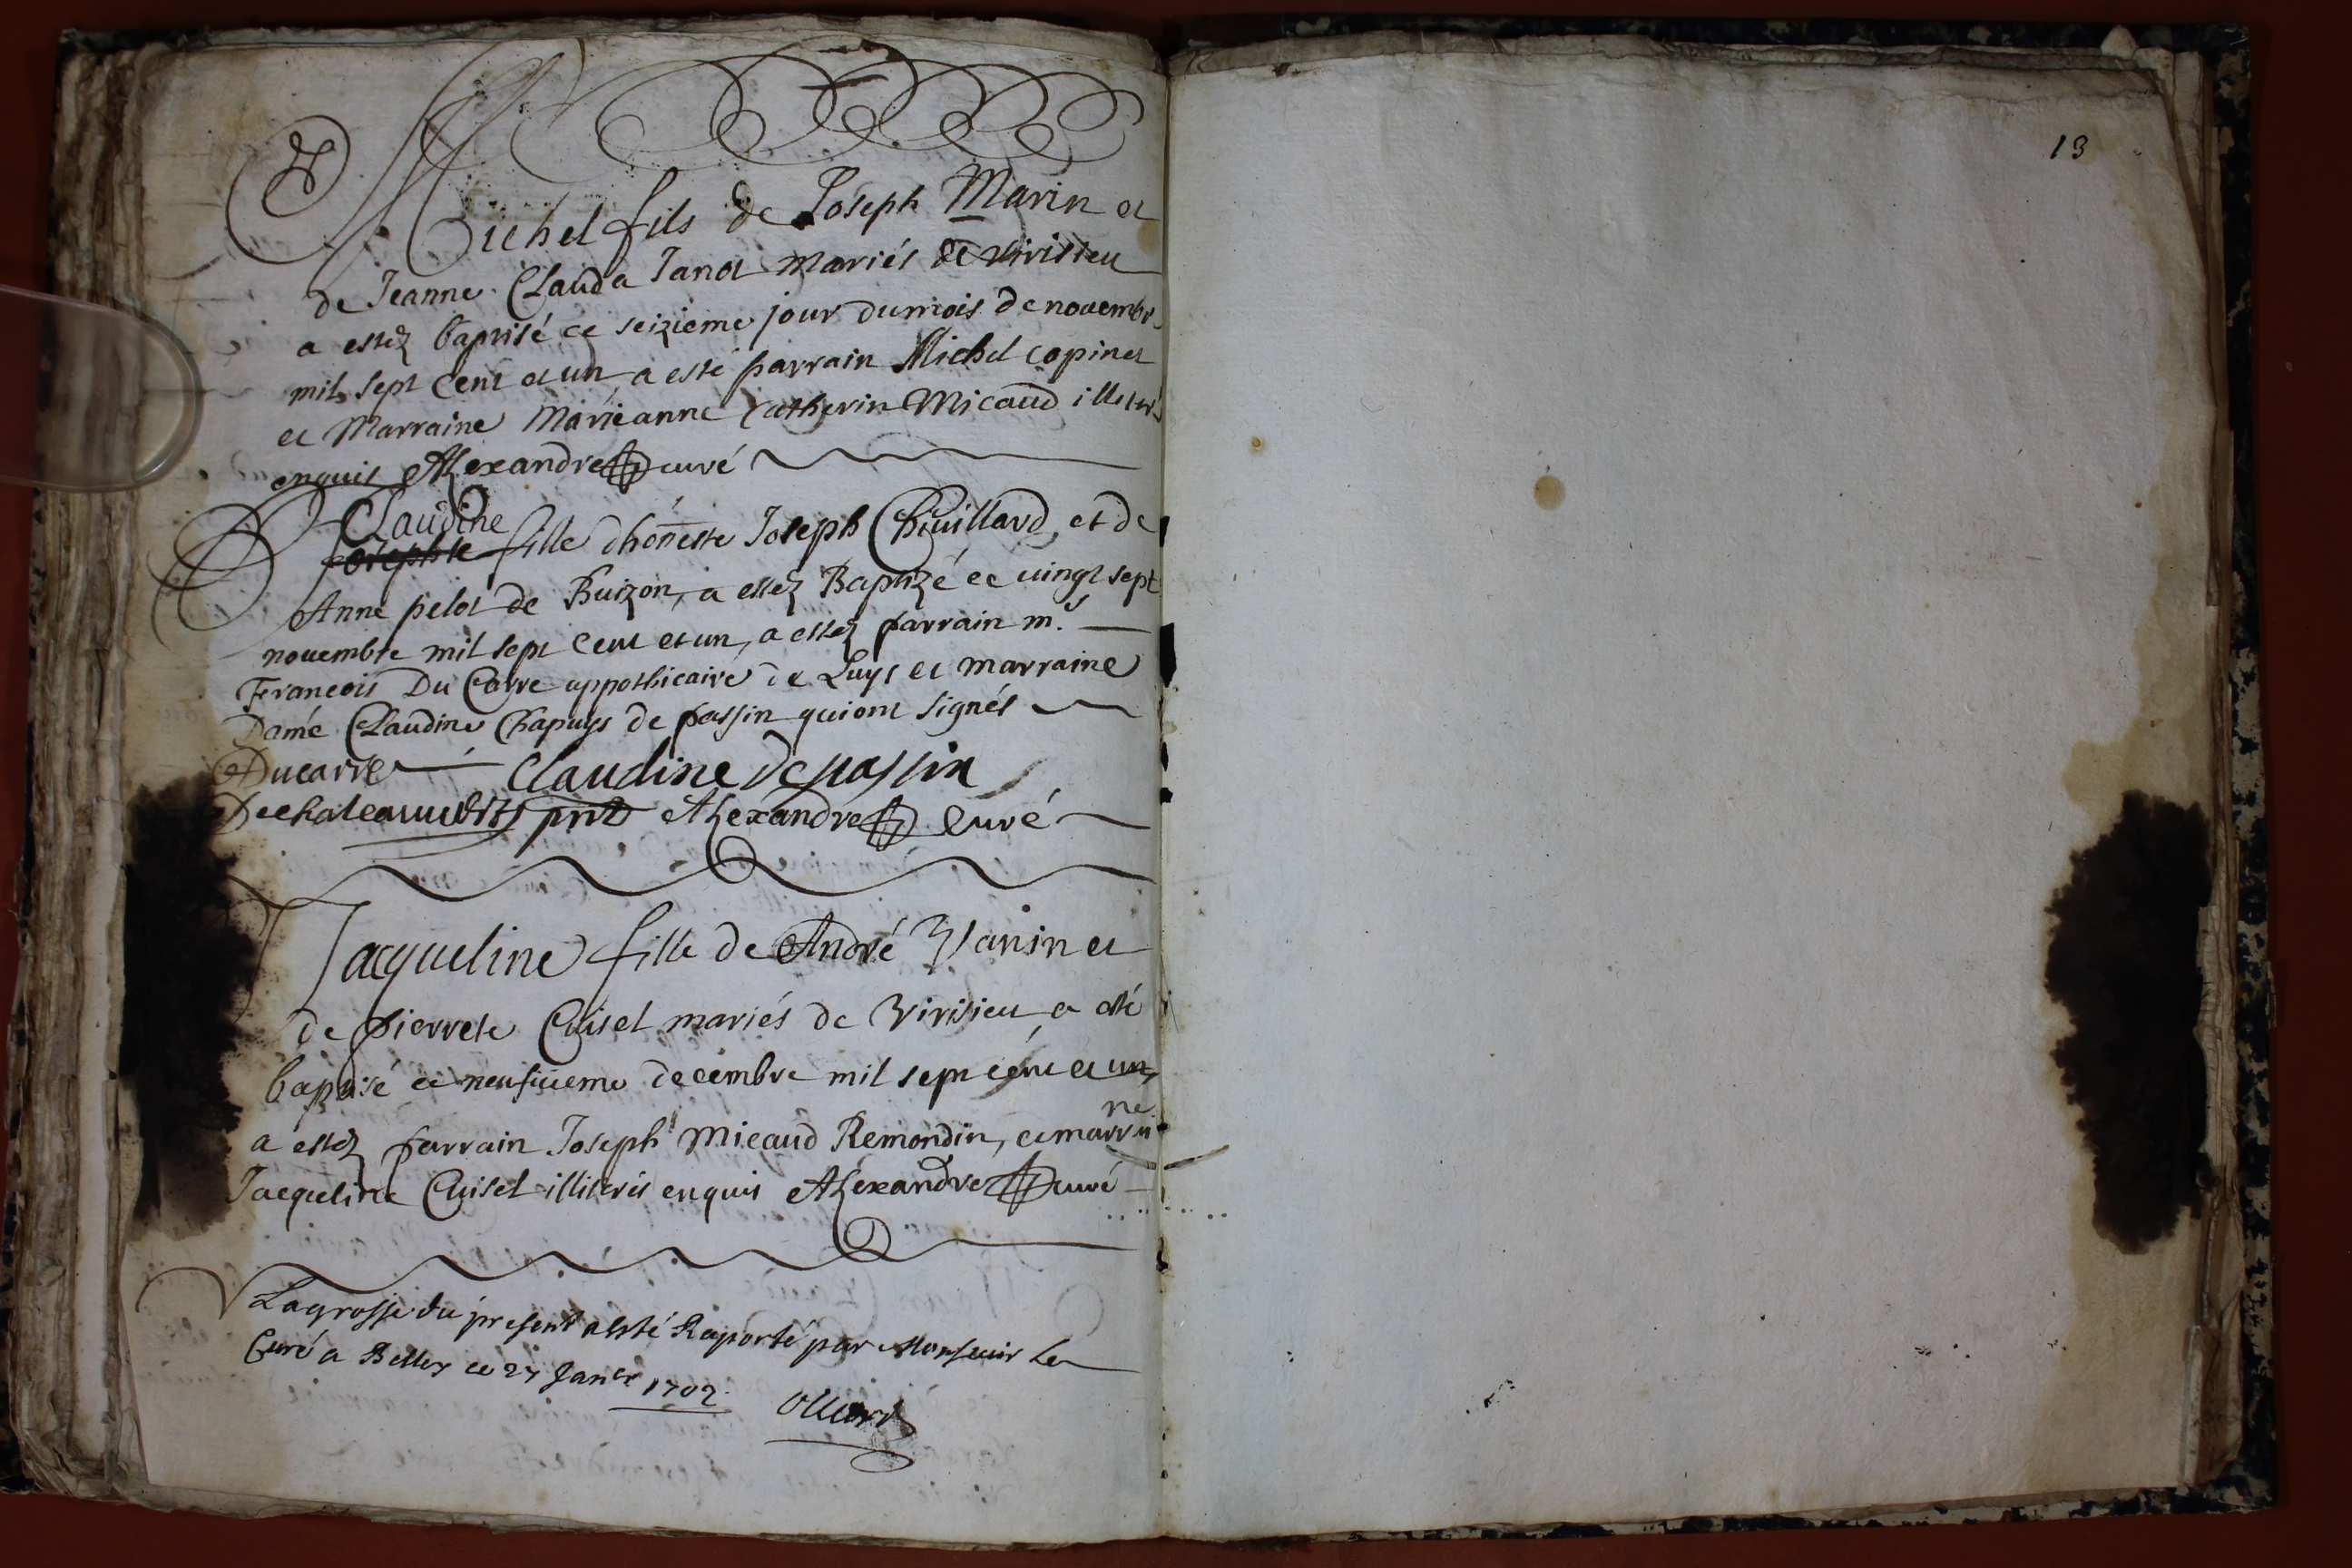 Michel fils de Joseph Marin et
de Jeanne Clauda Janot mariés de Virisieu
a estez baptisé ce seizieme jour du mois de novembre
mil sept cent et un a esté parrain Michel Copinet
et Marraine Marieanne Catherin Micaud illiterés
enquis Alexandre curé
Claudine
Josephte fille dhoneste Joseph Chuillard et de
Anne pelot de Buizon, a estez Baptizé ce vingt sept
novembre mil sept cent et un, a estez parrain mr
Francois Du Carre appothicaire de Luys et marraine
Dame Claudine Chapuys de passin qui ont signés
Ducarre Claudine de passin
Alexandre curé
Jacqueline fille de André Vanin et
de pierrete Cuiset mariés de Virisieu a esté
baptisé ce neufiieme decembre mil sept cent et un,
a estez parrain Joseph Micaud Remondin, et marraine
Jacqueline Cuiset illiterés enquis Alexandre curé
La grosse du present a esté Raporté par Monsieur Le
Curé a Belley ce 27 Janer 1702
13